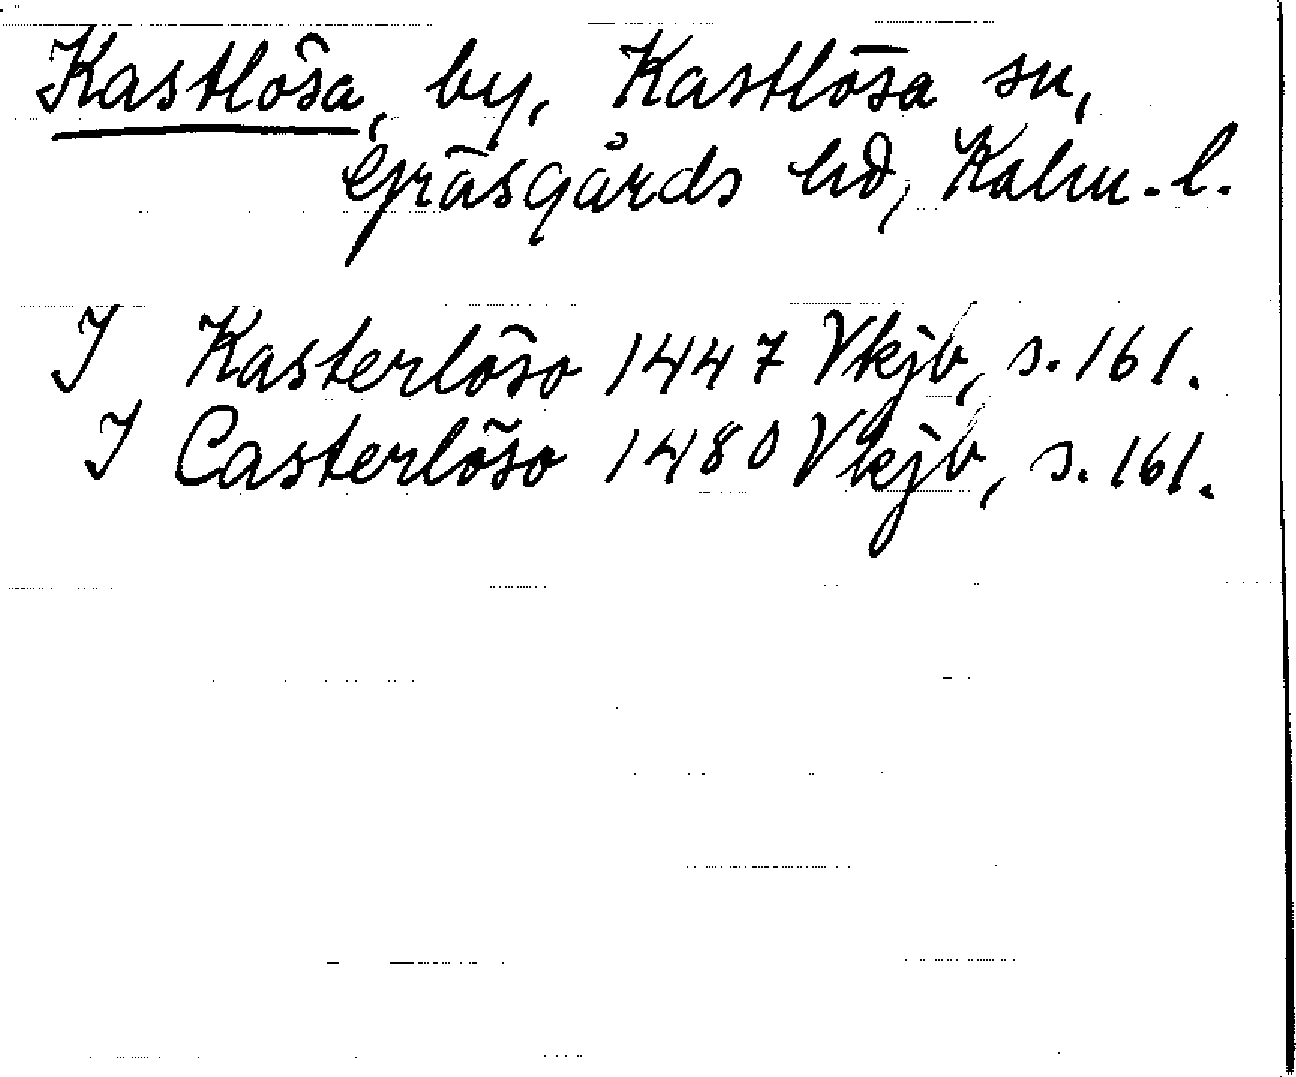 Kastlösa, by, Kastlösa sn,
Gräsgårds hd, Kalm. l.
I Kasterlöso 1447 Vkjb, s. 161.
I Casterlöso 1480 Vkjb, s. 161.